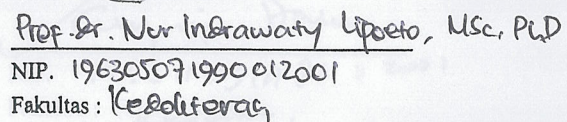 Prof. Dr. Nur Indrawaty Lipoeto, MSc, PhD
NIP. 196305071990012001
Fakultas : Kedokteran